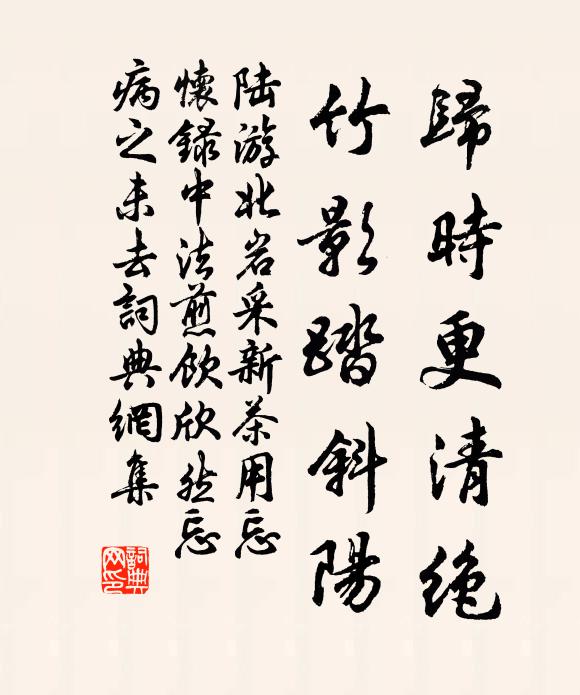 歸時更清絶
竹影踏斜陽
陆游北岩采新茶用忘
懷録中法煎飲欣然忘
病之未去詞典網集
詞典网印